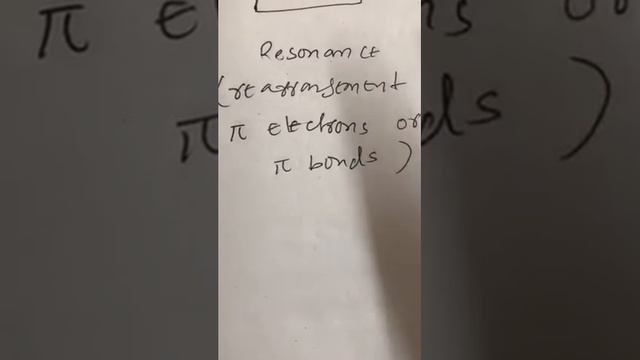 Resonance
(rearrangement
π electrons or
π bonds)